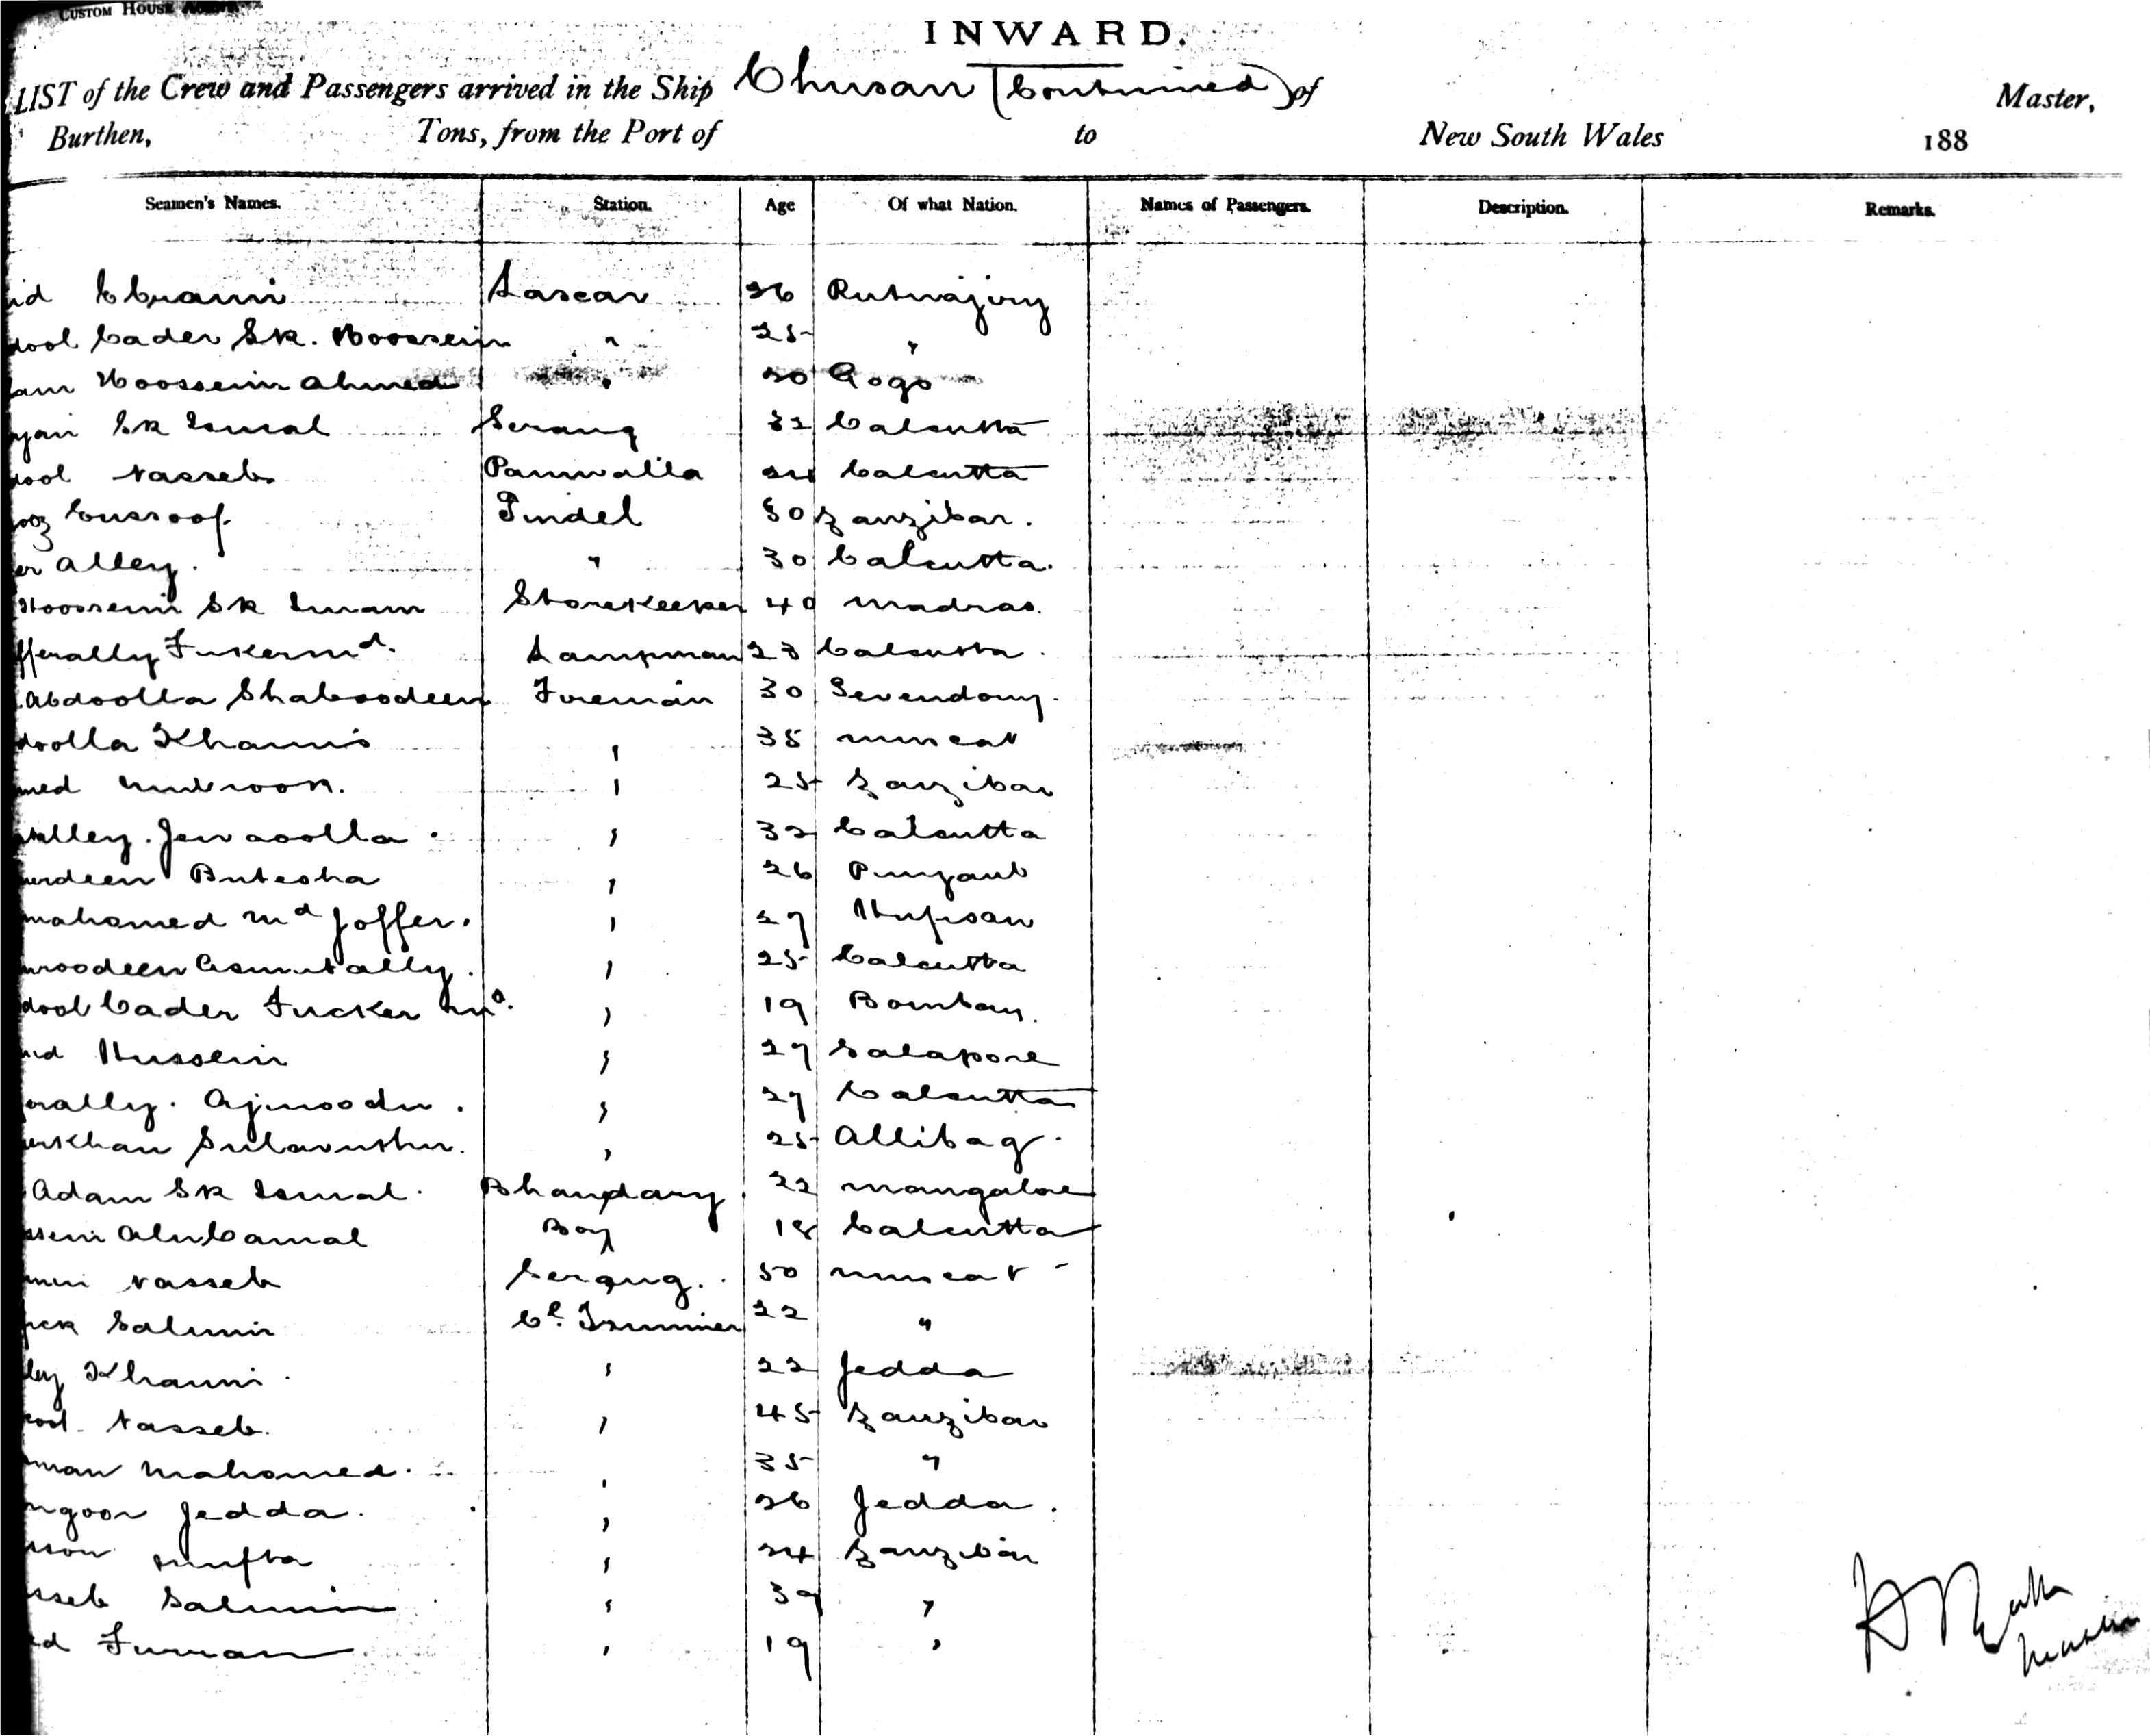 CUSTOM HOUSE
INWARD.
LIST of the Crew and Passengers arrived in the Ship Chusan (Continued) of Master,
Burthen, Tons, from the Port of to New South Wales 188
Seamen's Names. Station. Age Of what Nation. Names of Passengers. Description. Remarks.
id Lascar 26 Rutnajery
dool Cader Sk. Hoossein " 25 "
am Hoossein Ahmed " 30 Gogo
yan Sk Ismal Serang 32 Calcutta
ool Nasseb Paniwalla 24 Calcutta
Eussoof Tindel 30 Zanzibar.
er Alley. " 30 Calcutta.
Hoossein Sk Imam Storekeeper 40 Madras.
fferally Fukermd. Lampman 23 Calcutta
Abdoolla Shaboodeen Fireman 30
doolla Khamis " 35 Muscat
med Mubrook. " 25 Zanzibar
Alley. " 32 Calcutta
urdeen Butesha " 26 Punjaub
Mahomed Md Joffer. " 27
uroodeen Asmutally. " 25 Calcutta
dool Cader Fucker Md. " 19 Bombay.
Hussein " 27 Salapore
rally. Ajmoodn. " 27 Calcutta
erkhan " 25 Allibag.
Adam Sk Ismal. Bhandary. 22 Mangalore
ssein Camal Boy 18 Calcutta
Nasseb Serang. 50 Muscat
Salmin Cl. Trimmer 22 "
ley Khami. " 22 Jedda
ool. Nasseb. " 45 Zanzibar
man Mahomed. " 35 "
ngoor Jedda. " 26 Jedda.
sson " 24 Zanzibar
sseb Salmin " 39 "
d Furran " 19 "
Master